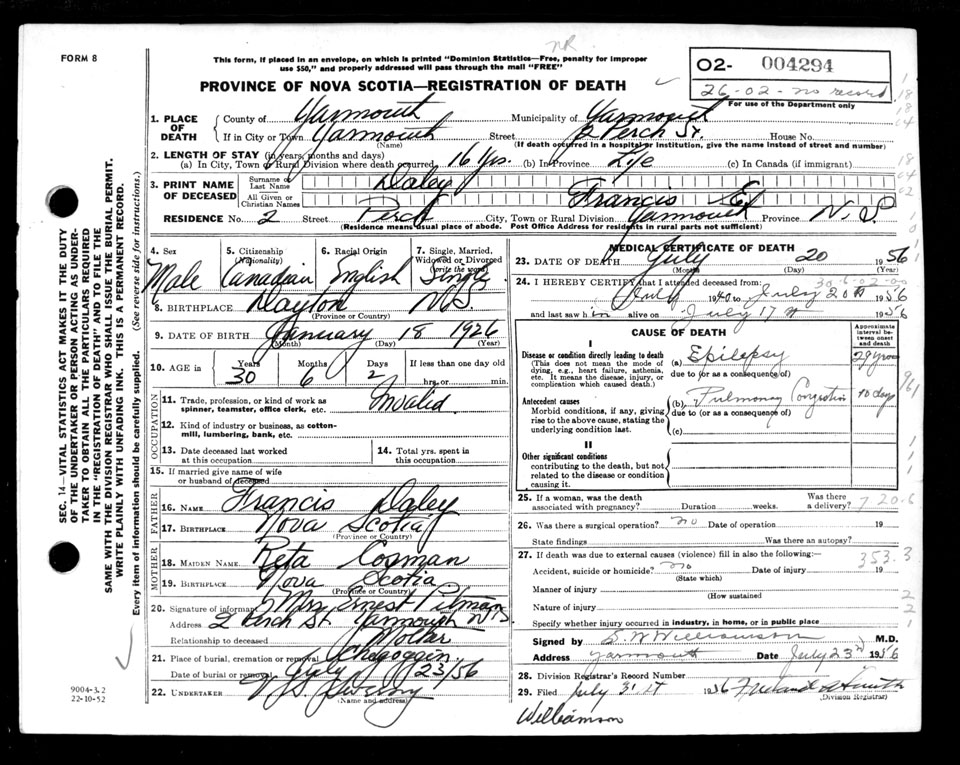 FORM 8
NR
This form, if placed in an envelope, on which is printed "Dominion Statistics—Free, penalty for improper
use $50," and properly addressed will pass through the mail "FREE"
O2- 004294
26-02-no record
For use of the Department only
PROVINCE OF NOVA SCOTIA—REGISTRATION OF DEATH
1. PLACE OF DEATH
County of Yarmouth Municipality of Yarmouth
If in City or Town Yarmouth Street 2 Perch St. House No.
(Name) (If death occurred in a hospital or institution, give the name instead of street and number)
2. LENGTH OF STAY (in years, months and days)
(a) In City, Town or Rural Division where death occurred 16 Yrs. (b) In Province Life (c) In Canada (if immigrant)
3. PRINT NAME OF DECEASED
Surname or Last Name Daley
All Given or Christian Names Francis Ed
RESIDENCE No. 2 Street Perch City, Town or Rural Division Yarmouth Province N.S.
(Residence means usual place of abode. Post Office Address for residents in rural parts not sufficient)
4. Sex 5. Citizenship (Nationality) 6. Racial Origin 7. Single, Married, Widowed or Divorced (write the word)
Male Canadian English Single
8. BIRTHPLACE Dayton N.S.
(Province or Country)
9. DATE OF BIRTH January 18 1926
(Month) (Day) (Year)
10. AGE in Years Months Days If less than one day old
30 6 2 hrs. or min.
OCCUPATION
11. Trade, profession, or kind of work as
spinner, teamster, office clerk, etc. Invalid
12. Kind of industry or business, as cotton-
mill, lumbering, bank, etc.
13. Date deceased last worked
at this occupation
14. Total yrs. spent in
this occupation
15. If married give name of wife
or husband of deceased
FATHER
16. NAME Francis Daley
17. BIRTHPLACE Nova Scotia
(Province or Country)
MOTHER
18. MAIDEN NAME Reta Cosman
19. BIRTHPLACE Nova Scotia
(Province or Country)
20. Signature of informant Mrs Ernest Pitman
Address 2 Perch St. Yarmouth N.S.
Relationship to deceased Mother
21. Place of burial, cremation or removal Chegoggin
Date of burial or removal July 23/56
22. UNDERTAKER
(Name and address)
MEDICAL CERTIFICATE OF DEATH
23. DATE OF DEATH July 20 1956
(Month) (Day) (Year)
24. I HEREBY CERTIFY that I attended deceased from:
July 1940 to July 20 1956
and last saw h im alive on July 17 1956
CAUSE OF DEATH
Approximate interval between onset and death
I
Disease or condition directly leading to death
(This does not mean the mode of
dying, e.g., heart failure, asthenia,
etc. It means the disease, injury, or
complication which caused death.)
(a) Epilepsy 29 years
due to (or as a consequence of)
Antecedent causes
Morbid conditions, if any, giving
rise to the above cause, stating the
underlying condition last.
(b) Pulmonary Congestion 10 days
due to (or as a consequence of)
(c)
II
Other significant conditions
contributing to the death, but not
related to the disease or condition
causing it.
25. If a woman, was the death
associated with pregnancy? Duration weeks. Was there a delivery?
720.6
26. Was there a surgical operation? no Date of operation 19
State findings Was there an autopsy?
27. If death was due to external causes (violence) fill in also the following:
353.3
Accident, suicide or homicide? no Date of injury 19
(State which)
Manner of injury
(How sustained)
Nature of injury
Specify whether injury occurred in industry, in home, or in public place
Signed by S. W. Williamson M.D.
Address Yarmouth Date July 23rd 1956
28. Division Registrar's Record Number
29. Filed July 31st 1956
(Division Registrar)
Williamson
SEC. 14—VITAL STATISTICS ACT MAKES IT THE DUTY
OF THE UNDERTAKER OR PERSON ACTING AS UNDER-
TAKER TO OBTAIN ALL THE PARTICULARS REQUIRED
IN THE "REGISTRATION OF DEATH" AND TO FILE THE
SAME WITH THE DIVISION REGISTRAR WHO SHALL ISSUE THE BURIAL PERMIT.
WRITE PLAINLY WITH UNFADING INK. THIS IS A PERMANENT RECORD.
Every item of information should be carefully supplied. (See reverse side for instructions.)
9004-3.2
22-10-52